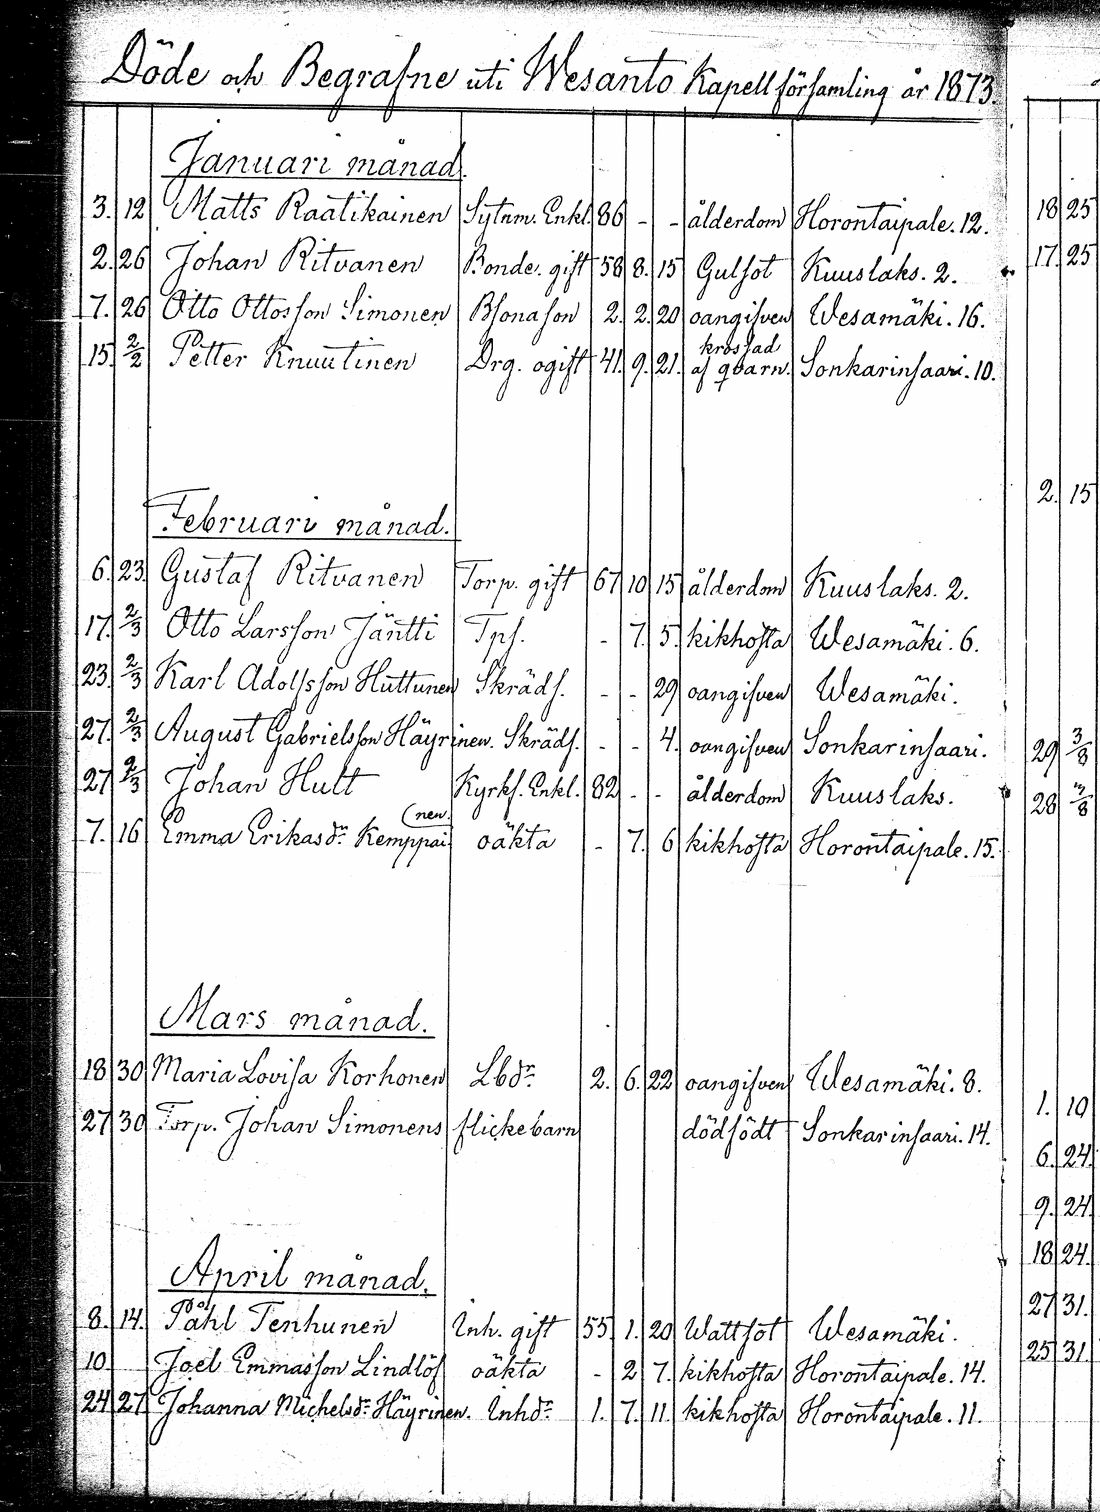 Döde och Begrafne uti Wesanto Kapellförsamling år 1873.
Januari månad.
3. 12 Matts Raatikainen Sytnm. Enkl. 86 - - ålderdom Horontaipale. 12.
2. 26 Johan Ritvanen Bonde. gift 58 8. 15 Gulsot Kuuslaks. 2.
7. 26 Otto Ottosson Simonen Bsonason 2. 2. 20 oangifven Wesamäki. 16.
15. 2/2 Petter Knuutinen Drg. ogift 41. 9. 21. krossad af qvarn. Sonkarinsaari. 10.
Februari månad.
6. 23. Gustaf Ritvanen Torp. gift 67 10 15 ålderdom Kuuslaks. 2.
17. 2/3 Otto Larsson Jäntti Tps. - 7. 5. kikhosta Wesamäki. 6.
23. 2/3 Karl Adolfsson Huttunen Skräds. - - 29 oangifven Wesamäki.
27. 2/3 August Gabrielsson Häyrinen. Skräds. - - 4. oangifven Sonkarinsaari.
27 2/3 Johan Hult Kyrks. Enkl. 82 - - ålderdom Kuuslaks.
7. 16 Emma Erikasdr. Kemppai(nen. oäkta - 7. 6 kikhosta Horontaipale. 15.
Mars månad.
18 30 Maria Lovisa Korhonen Lbdr. 2. 6. 22 oangifven Wesamäki. 8.
27 30 Torp. Johan Simonens flickebarn dödfödt Sonkarinsaari. 14.
April månad.
8. 14. Påhl Tenhunen Inh. gift 55 1. 20 Wattsot Wesamäki.
10. Joel Emmasson Lindlöf oäkta - 2 7. kikhosta Horontaipale. 14.
24 27 Johanna Michelsdr. Häyrinen. Inhdr. 1. 7. 11. kikhosta Horontaipale. 11.
18 25
17. 25
2. 15
29 3/8
28 3/8
1. 10
6. 24.
9. 24.
18 24.
27 31.
25 31.